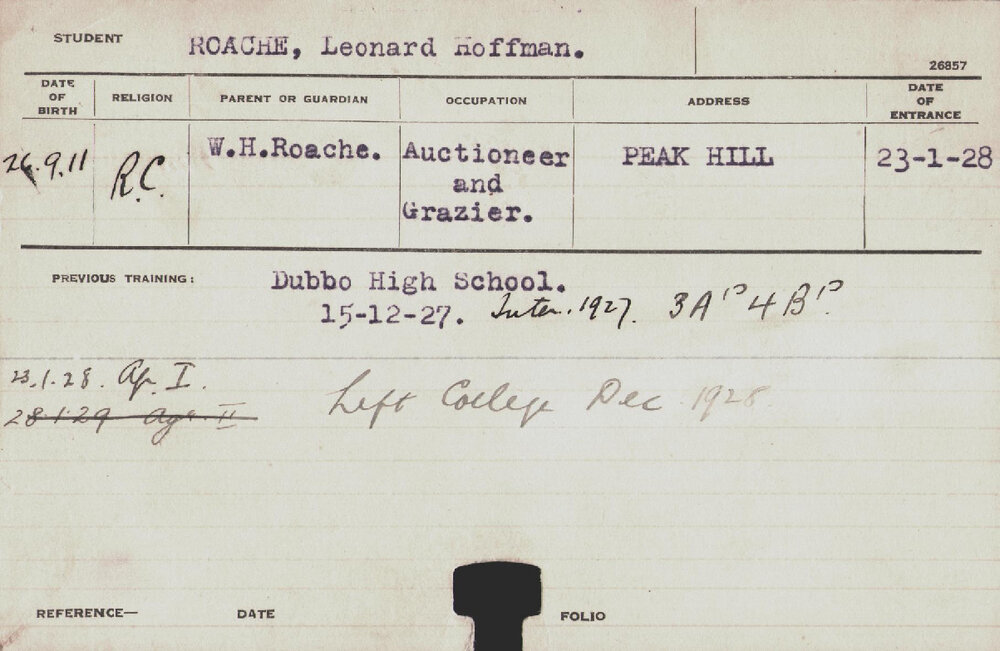 STUDENT ROACHE, Leonard Hoffman.
26857
DATE OF BIRTH RELIGION PARENT OR GUARDIAN OCCUPATION ADDRESS DATE OF ENTRANCE
26.9.11 R.C. W.H.Roache. Auctioneer and Grazier. PEAK HILL 23-1-28
PREVIOUS TRAINING: Dubbo High School.
15-12-27. Inter. 1927. 3A's 4B's.
23.1.28. Ag. I.
28.1.29 Ag. II
Left College Dec 1928
REFERENCE— DATE FOLIO